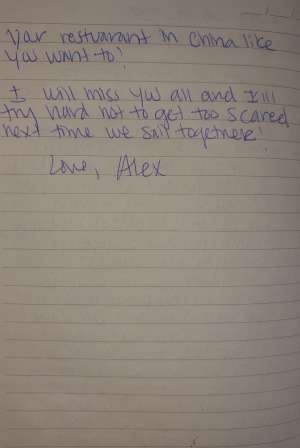 your restuarant in China like
you want to!
I will miss you all and I'll
try hard not to get too scared
next time we sail together!
Love, Alex